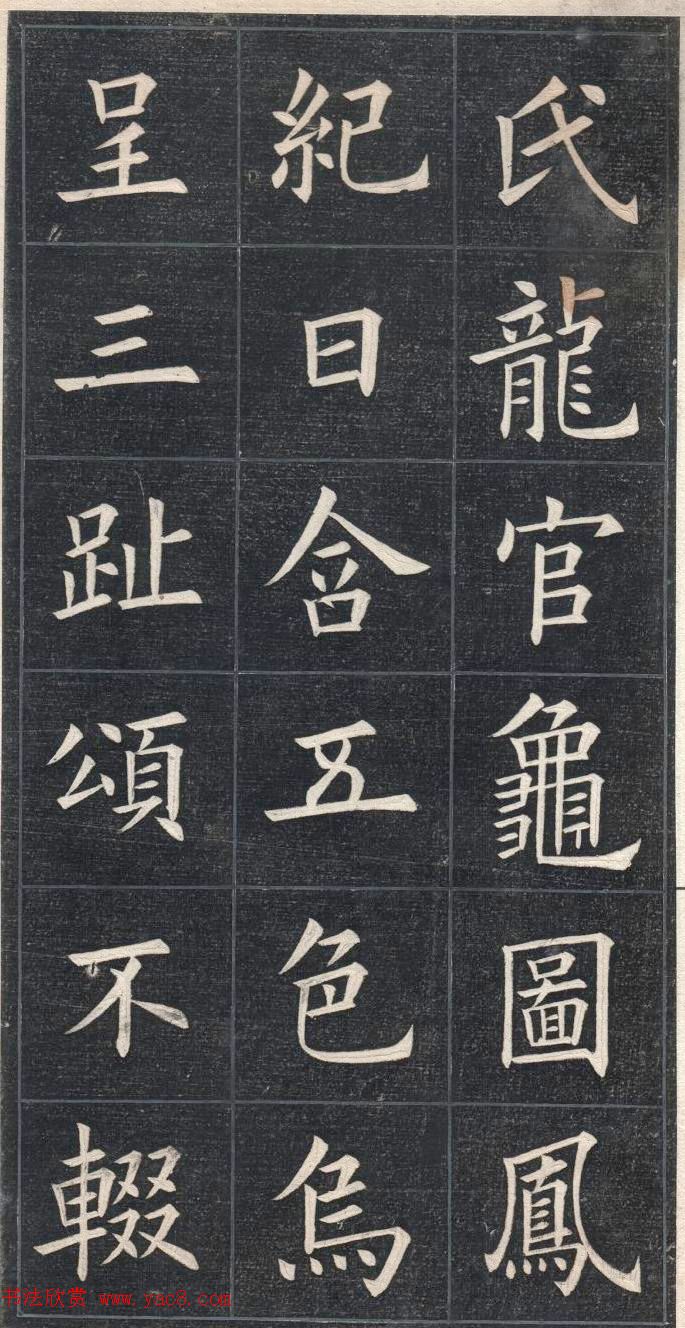 氏龍官龜圖鳳
紀日含五色烏
呈三趾頌不輟
书法欣赏 www.yac8.com